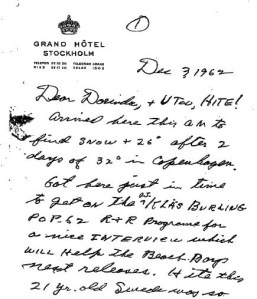 ①
GRAND HÔTEL
STOCKHOLM
Dec 3, 1962
Dear Dorinda, + UTed, HITE!
Arrived here this A M to
find SNOW + 26° after 2
days of 32° in Copenhagen.
Got here just in time
to get on the KLAS BURLING
POP. 62 R+R Programe for
a nice INTERVIEW which
WILL Help the Beach Boys
next releases. Hite this
21 yr. old Swede was so